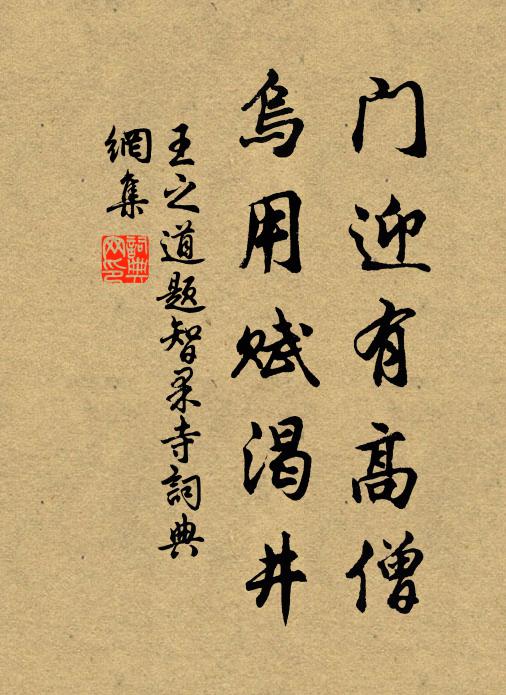 门迎有高僧
乌用赋渴井
王之道题智果寺詞典
網集
詞典
网印